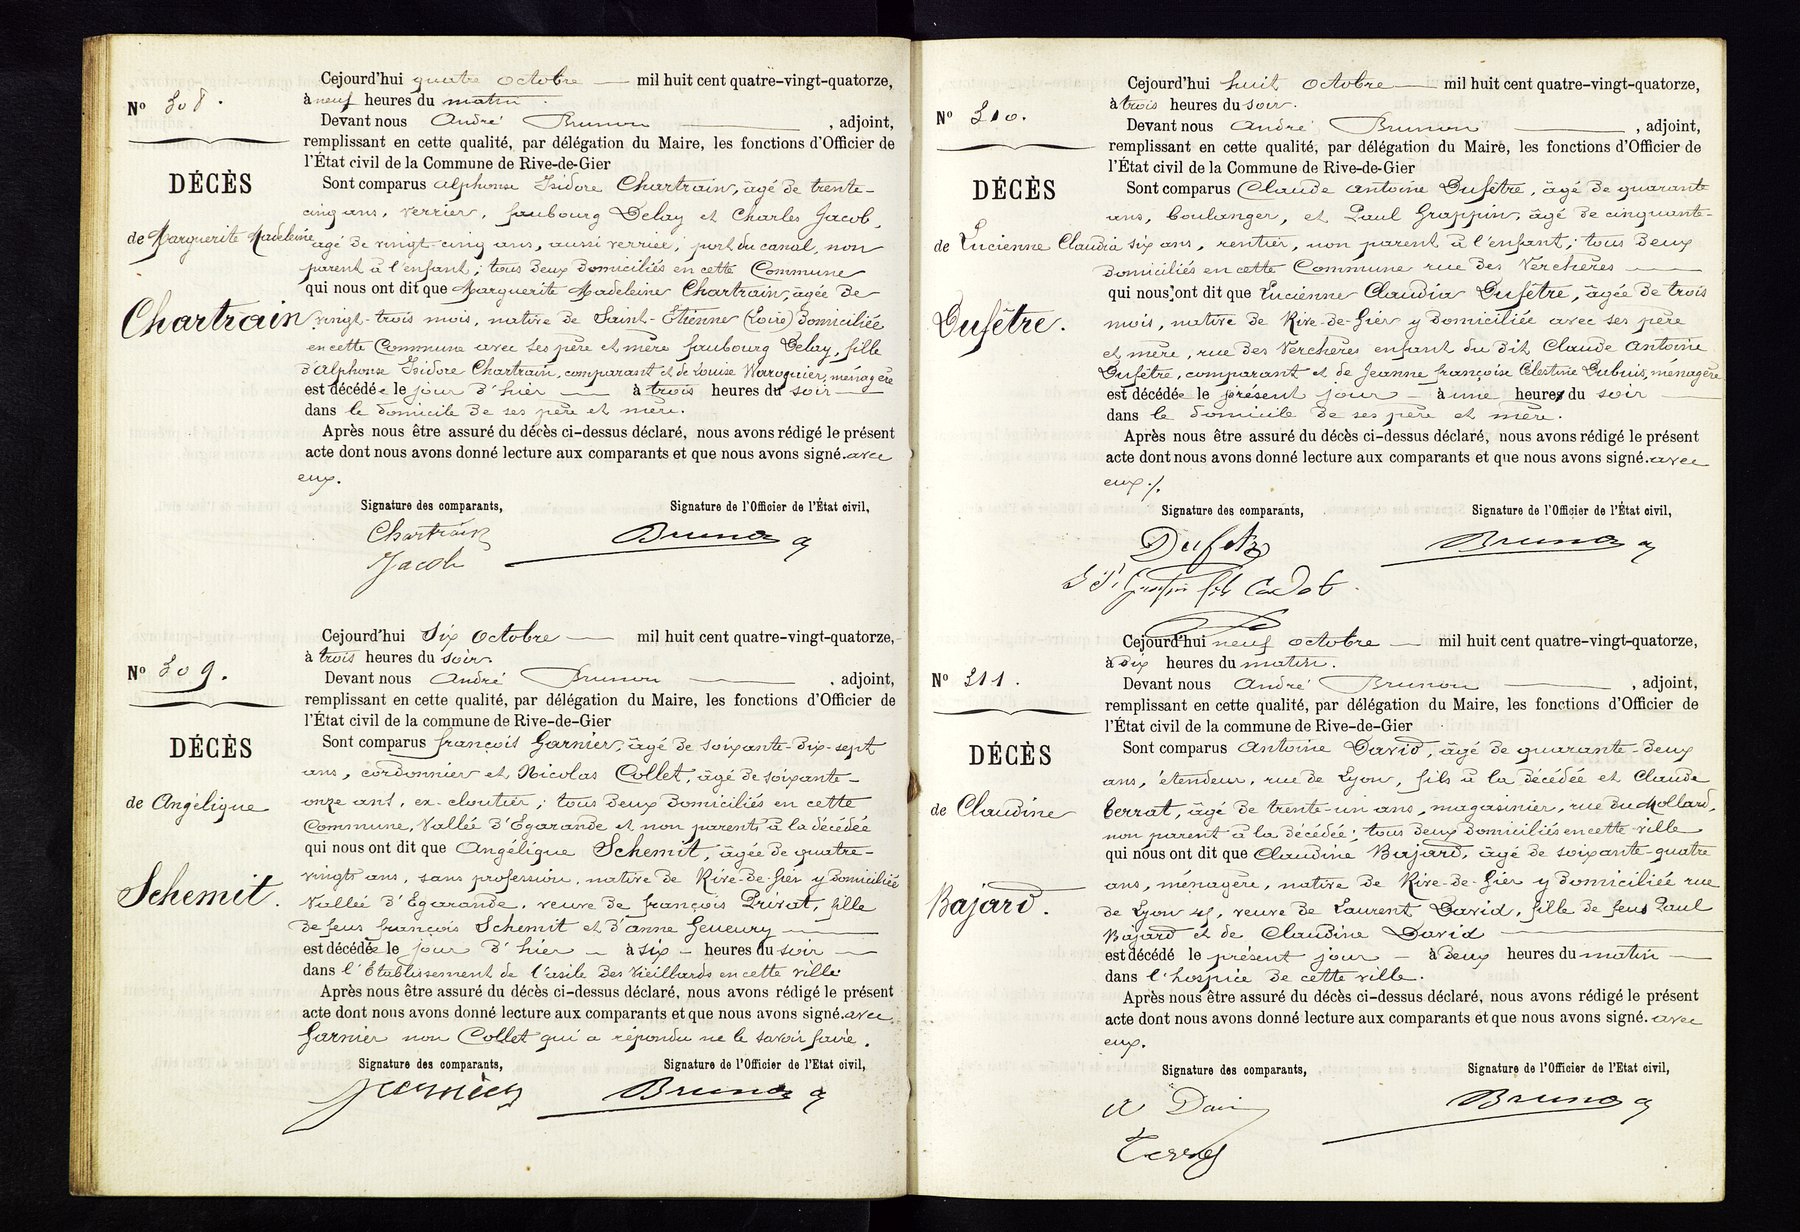 Nº 308.
DÉCÈS
de Marguerite Madeleine
Chartrain
Cejourd'hui quatre octobre — mil huit cent quatre-vingt-quatorze,
à neuf heures du matin.
Devant nous André Brunon — , adjoint,
remplissant en cette qualité, par délégation du Maire, les fonctions d'Officier de
l'État civil de la Commune de Rive-de-Gier
Sont comparus Alphonse Isidore Chartrain, âgé de trente-
cinq ans, verrier, faubourg Delay et Charles Jacob,
agé de vingt cinq ans, aussi verrier, port du canal, non
parent à l'enfant; tous deux domiciliés en cette Commune
qui nous ont dit que Marguerite Madeleine Chartrain, âgée de
vingt-trois mois, native de Saint-Etienne (Loire) domiciliée
en cette Commune avec ses père et mère faubourg Delay, fille
d'Alphonse Isidore Chartrain, comparant et de Louise Waroquier, ménagère
est décédée le jour d'hier — à trois heures du soir —
dans le domicile de ses père et mère.
Après nous être assuré du décès ci-dessus déclaré, nous avons rédigé le présent
acte dont nous avons donné lecture aux comparants et que nous avons signé. avec
eux.
Signature des comparants, Signature de l'Officier de l'État civil,
Chartrain Brunon
Jacob
Nº 309.
DÉCÈS
de Angélique
Schemit.
Cejourd'hui Six Octobre — mil huit cent quatre-vingt-quatorze,
à trois heures du soir.
Devant nous André Brunon — , adjoint,
remplissant en cette qualité, par délégation du Maire, les fonctions d'Officier de
l'État civil de la commune de Rive-de-Gier
Sont comparus françois Garnier, âgé de soixante-dix-sept
ans, cordonnier et Nicolas Collet, âgé de soixante-
onze ans, ex-cloutier; tous deux domiciliés en cette
Commune, Vallée d'Egarande et non parents à la décédée
qui nous ont dit que Angélique Schemit, âgée de quatre-
vingts ans, sans profession, native de Rive-de-Gier y domiciliée
Vallée d'Egarande, veuve de françois Privat, fille
de feus françois Schemit et d'anne Geueury —
est décédée le jour d'hier — à six — heures du soir —
dans l'Etablissement de l'asile des Vieillards en cette ville
Après nous être assuré du décès ci-dessus déclaré, nous avons rédigé le présent
acte dont nous avons donné lecture aux comparants et que nous avons signé. avec
Garnier non Collet qui a répondu ne le savoir faire.
Signature des comparants, Signature de l'Officier de l'Etat civil,
Garnier Brunon
Nº 310.
DÉCÈS
de Lucienne Claudia
Dufêtre.
Cejourd'hui huit octobre — mil huit cent quatre-vingt-quatorze,
à trois heures du soir.
Devant nous André Brunon — , adjoint,
remplissant en cette qualité, par délégation du Maire, les fonctions d'Officier de
l'État civil de la Commune de Rive-de-Gier
Sont comparus Claude Antoine Dufêtre, âgé de quarante
ans, boulanger, et Paul Grappin, âgé de cinquante-
six ans, rentier, non parent à l'enfant; tous deux
domiciliés en cette Commune rue des Verchères —
qui nous ont dit que Lucienne Claudia Dufêtre, âgée de trois
mois, native de Rive-de-Gier y domiciliée avec ses père
et mère, rue des Verchères enfant du dit Claude Antoine
Dufêtre, comparant et de Jeanne françoise Célestine Dubuis, ménagère
est décédée le présent jour — à une heures du soir —
dans le domicile de ses père et mère.
Après nous être assuré du décès ci-dessus déclaré, nous avons rédigé le présent
acte dont nous avons donné lecture aux comparants et que nous avons signé. avec
eux./.
Signature des comparants, Signature de l'Officier de l'État civil,
Dufetre Brunon
fils Cadet
Nº 311.
DÉCÈS
de Claudine
Bajard.
Cejourd'hui neuf octobre — mil huit cent quatre-vingt-quatorze,
à dix heures du matin.
Devant nous André Brunon — , adjoint,
remplissant en cette qualité, par délégation du Maire, les fonctions d'Officier de
l'État civil de la commune de Rive-de-Gier
Sont comparus Antoine David, âgé de quarante-deux
ans, étendeur, rue de Lyon, fils à la décédée et Claude
Terrat, âgé de trente-un ans, magasinier, rue du Mollard,
non parent à la décédée; tous deux domiciliés en cette ville
qui nous ont dit que Claudine Bajard, âgé de soixante-quatre
ans, ménagère, native de Rive-de-Gier y domiciliée rue
de Lyon 45, veuve de Laurent David, fille de feus Paul
Bajard et de Claudine David —
est décédé le présent jour — à deux heures du matin —
dans l'hospice de cette ville.
Après nous être assuré du décès ci-dessus déclaré, nous avons rédigé le présent
acte dont nous avons donné lecture aux comparants et que nous avons signé. avec
eux.
Signature des comparants, Signature de l'Officier de l'Etat civil,
A David Brunon
Terrat